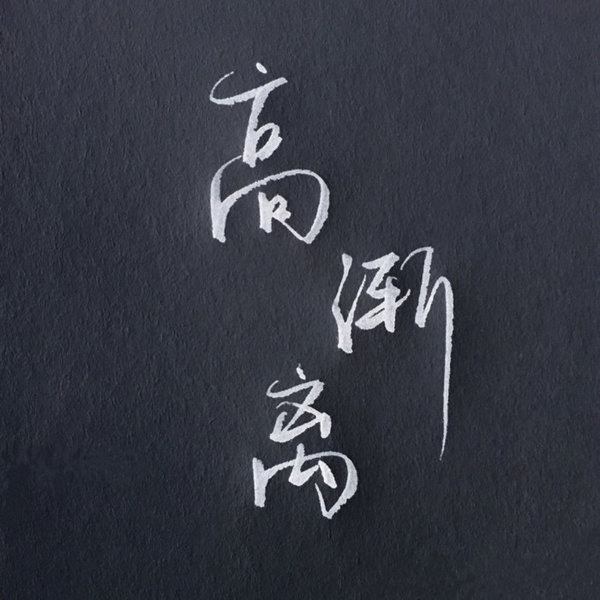 高渐离